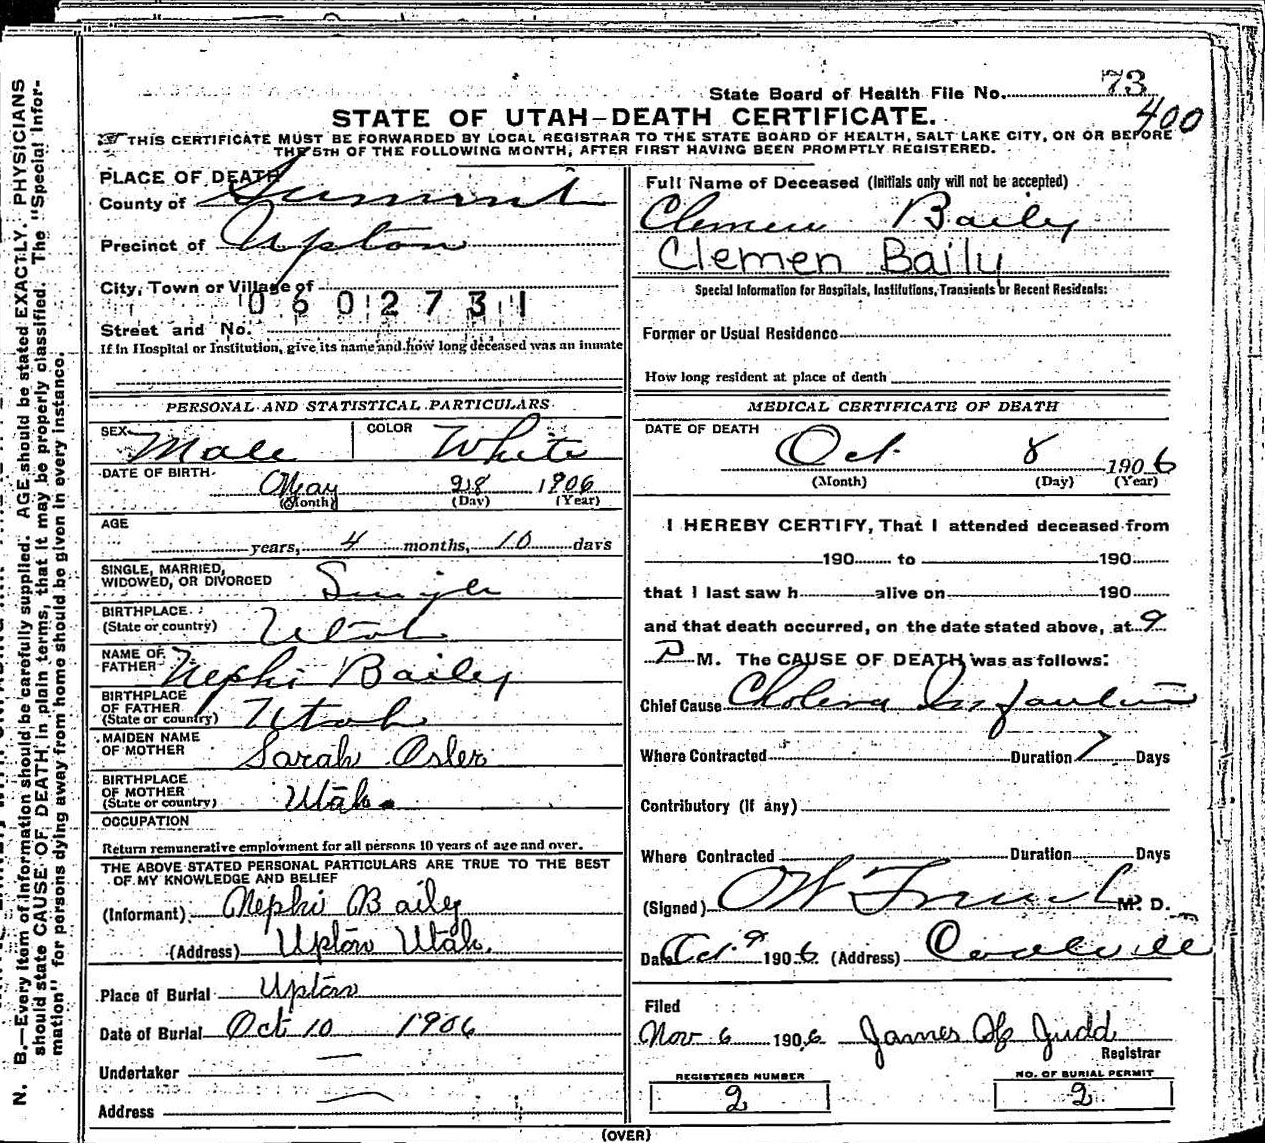 State Board of Health File No. 73
400
STATE OF UTAH–DEATH CERTIFICATE.
THIS CERTIFICATE MUST BE FORWARDED BY LOCAL REGISTRAR TO THE STATE BOARD OF HEALTH, SALT LAKE CITY, ON OR BEFORE
THE 5TH OF THE FOLLOWING MONTH, AFTER FIRST HAVING BEEN PROMPTLY REGISTERED.
PLACE OF DEATH
County of Summit
Precinct of Upton
City, Town or Village of
0602731
Street and No.
If in Hospital or Institution, give its name and how long deceased was an inmate
PERSONAL AND STATISTICAL PARTICULARS
SEX Male COLOR White
DATE OF BIRTH
May 28 1906
(Month) (Day) (Year)
AGE
years, 4 months, 10 days
SINGLE, MARRIED,
WIDOWED, OR DIVORCED Single
BIRTHPLACE
(State or country) Utah
NAME OF
FATHER Nephi Bailey
BIRTHPLACE
OF FATHER
(State or country) Utah
MAIDEN NAME
OF MOTHER Sarah Osler
BIRTHPLACE
OF MOTHER
(State or country) Utah
OCCUPATION
Return remunerative employment for all persons 10 years of age and over.
THE ABOVE STATED PERSONAL PARTICULARS ARE TRUE TO THE BEST
OF MY KNOWLEDGE AND BELIEF
(Informant) Nephi Bailey
(Address) Upton Utah.
Place of Burial Upton
Date of Burial Oct 10 1906
Undertaker —
Address —
Full Name of Deceased (Initials only will not be accepted)
Clemen Baily
Clemen Baily
Special Information for Hospitals, Institutions, Transients or Recent Residents:
Former or Usual Residence
How long resident at place of death
MEDICAL CERTIFICATE OF DEATH
DATE OF DEATH
Oct. 8 1906
(Month) (Day) (Year)
I HEREBY CERTIFY, That I attended deceased from
190 to 190
that I last saw h alive on 190
and that death occurred, on the date stated above, at 9
P M. The CAUSE OF DEATH was as follows:
Chief Cause Cholera Infantum
Where Contracted Duration 7 Days
Contributory (if any)
Where Contracted Duration Days
(Signed) M. D.
Date Oct. 9 1906 (Address) Coalville
Filed
Nov 6 1906 James Judd
Registrar
REGISTERED NUMBER
2
NO. OF BURIAL PERMIT
2
(OVER)
N. B.—Every item of information should be carefully supplied. AGE should be stated EXACTLY. PHYSICIANS
should state CAUSE OF DEATH in plain terms, that it may be properly classified. The "Special Infor-
mation" for persons dying away from home should be given in every instance.